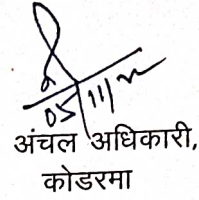 05/11/22
अंचल अधिकारी,
कोडरमा